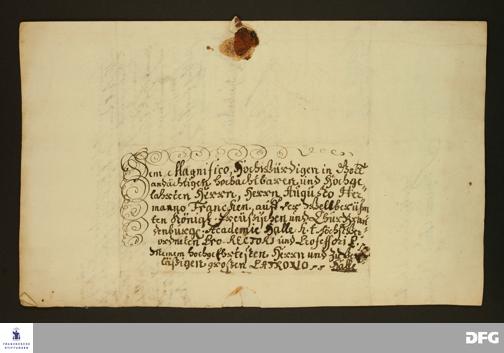 Dem Magnifico, Hochwürdigen in Gott
andächtigen hochachtbaren und Hochge-
lahrten Herrn, Herrn Augusto Her-
manno Francken, auff der Weltberühm-
ten Königl. Preussischen und
Academie Halle h. t. hochverord-
ordneten Pro-RECTORI und Professori
Meinem hochgeehrtesten Herrn und
lässigen grossen PATRONO
Halle
FRANCKESCHE
STIFTUNGEN
DFG